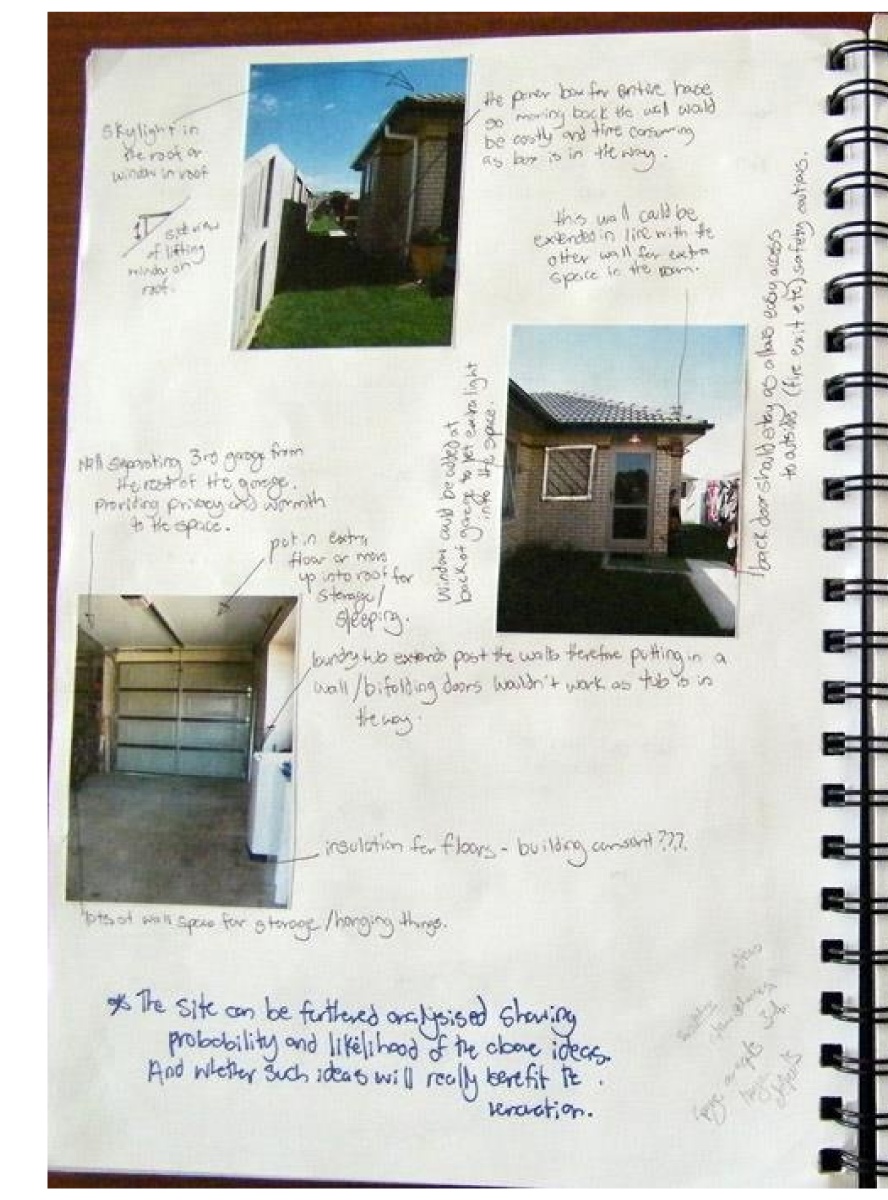 Skylight in
the roof or
window in roof
side view
of lifting
window on
roof.
the power box for entire house
so moving back the wall would
be costly and time consuming
as box is in the way.
this wall could be
extended in line with the
other wall for extra
space in the room.
back door should stay as allows easy access
to outside (fire exit etc) safety
Window could be added at
back of garage to let extra light
into the space.
Wall separating 3rd garage from
the rest of the garage.
providing privacy and warmth
to the space.
put in extra
floor or move
up into roof for
storage/
sleeping.
laundry tub extends past the walls therefore putting in a
wall/bifolding doors wouldn't work as tub is in
the way.
insulation for floors - building consent???
lots of wall space for storage/hanging things.
* The site can be furthered analysised showing
probability and likelihood of the above ideas.
And whether such ideas will really benefit the
renovation.